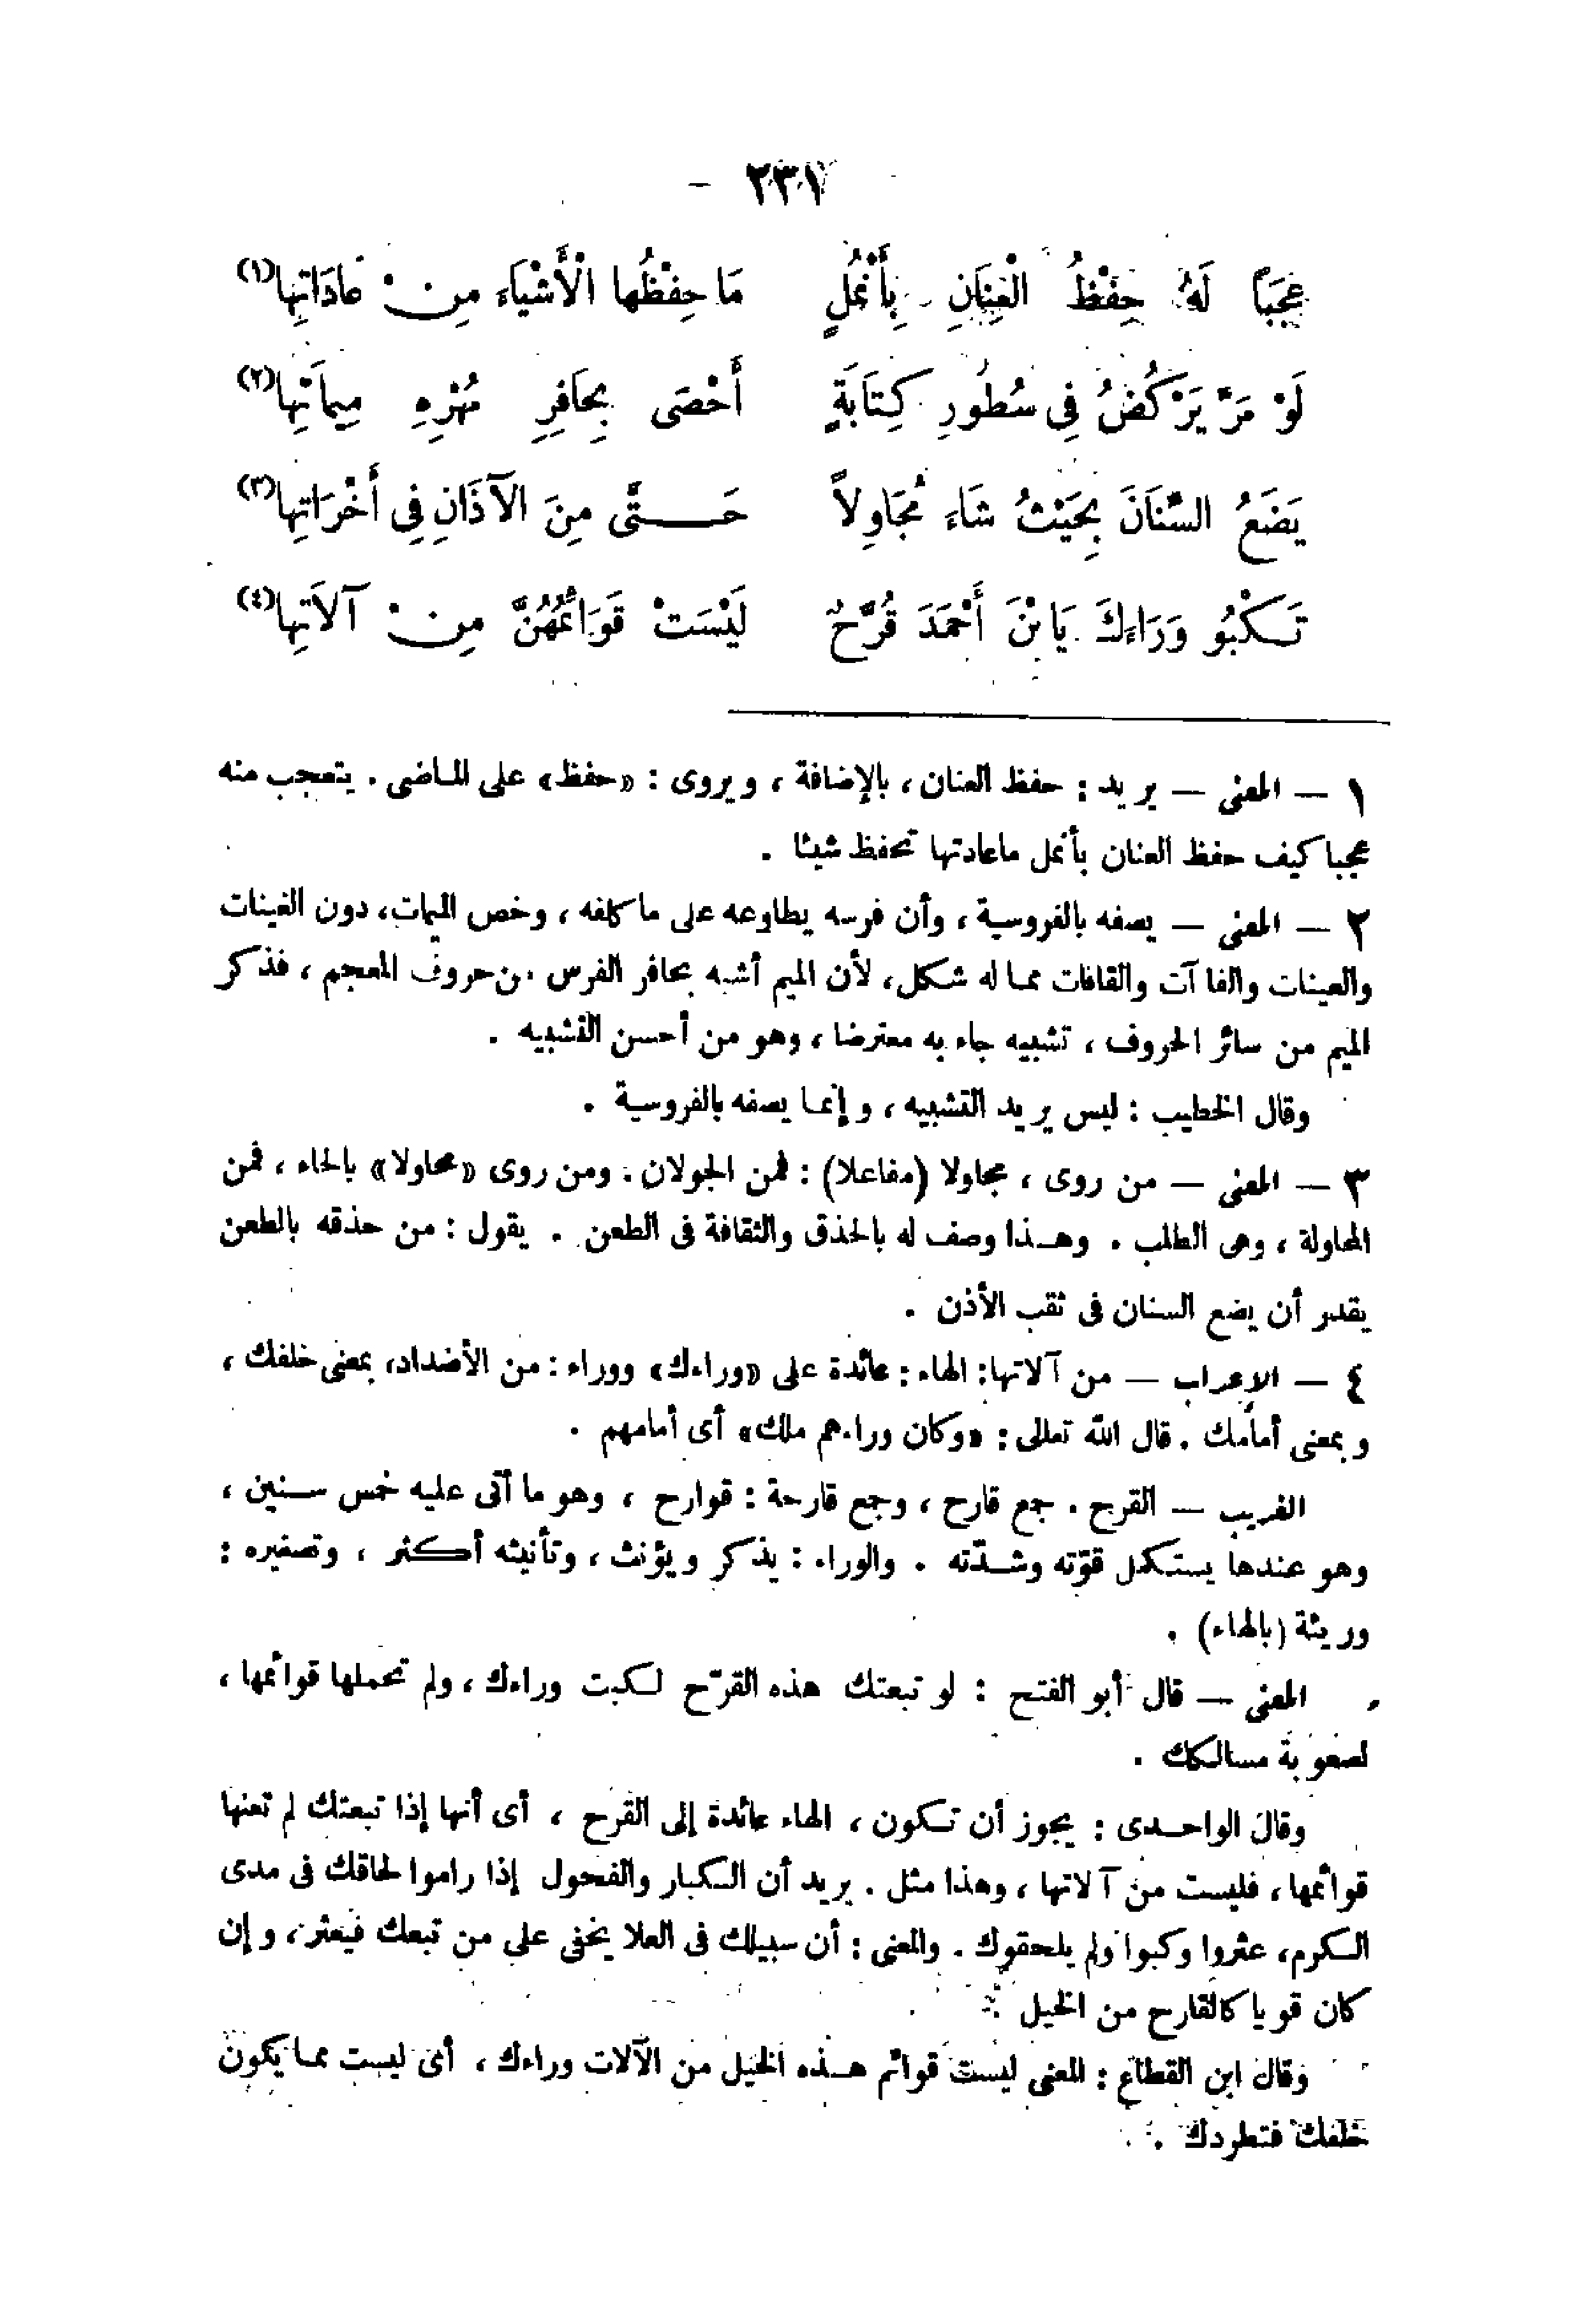 - ٢٣١ -
عَجَبًا لَهُ حِفْظُ الْعِنَانِ بِأَنْمُلٍ مَا حِفْظُها الْأَشْيَاءَ مِنْ عَادَاتِها (١)
لَوْ مَرَّ يَرْكُضُ فِى سُطُورِ كِتَابَةٍ أَحْصَى بِحَافِرِ مُهْرِهِ مِيمَاتِها (٢)
يَضَعُ السِّنَانَ بِحَيْثُ شَاءَ مُجَاوِلاً حَتَّى مِنَ الآذَانِ فِى أَخْرَاتِها (٣)
تَكْبُو وَرَاءَكَ يَابْنَ أَحْمَدَ قُرَّحٌ لَيْسَتْ قَوَائمُهُنَّ مِنْ آلاَتِها (٤)
١ — المعنى — يريد : حفظ العنان ، بالإضافة ، ويروى : «حفظ» على الماضى . يتعجب منه
عجبا كيف حفظ العنان بأنمل ماعادتها تحفظ شيئا .
٢ — المعنى — يصفه بالفروسية ، وأن فرسه يطاوعه على ما كلفه ، وخص الميمات، دون الغينات
والعينات والفاآت والقافات مما له شكل، لأن الميم أشبه بحافر الفرس من حروف المعجم ، فذكر
الميم من سائر الحروف ، تشبيه جاء به معترضا ، وهو من أحسن التشبيه .
وقال الخطيب : ليس يريد التشبيه ، وإنما يصفه بالفروسية .
٣ — المعنى — من روى ، مجاولا (مفاعلا) : فمن الجولان . ومن روى «محاولا» بالحاء ، فمن
المحاولة ، وهى الطلب . وهذا وصف له بالحذق والثقافة فى الطعن . يقول : من حذقه بالطعن
يقدر أن يضع السنان فى ثقب الأذن .
٤ — الإعراب — من آلاتها: الهاء : عائدة على «وراءك» ووراء : من الأضداد، بمعنى خلفك ،
وبمعنى أمامك . قال الله تعالى : «وكان وراءهم ملك» أى أمامهم .
الغريب — القرح . جمع قارح ، وجمع قارحة : قوارح ، وهو ما أتى عليه خمس سنين ،
وهو عندها يستكمل قوّته وشدّته . والوراء : يذكر ويؤنث ، وتأنيثه أكثر ، وتصغيره :
وريئة (بالهاء) .
المعنى — قال أبو الفتح : لو تبعتك هذه القرّح لكبت وراءك ، ولم تحملها قوائمها ،
لصعوبة مسالكك .
وقال الواحدى : يجوز أن تكون ، الهاء عائدة إلى القرح ، أى أنها إذا تبعتك لم تعنها
قوائمها ، فليست من آلاتها ، وهذا مثل . يريد أن الكبار والفحول إذا راموا لحاقك فى مدى
الكرم، عثروا وكبوا ولم يلحقوك . والمعنى : أن سبيلك فى العلا يخفى على من تبعك فيعثر ، وإن
كان قويا كالقارح من الخيل .
وقال ابن القطاع : المعنى ليست قوائم هذه الخيل من الآلات وراءك ، أى ليست مما يكون
خلفك فتطردك .